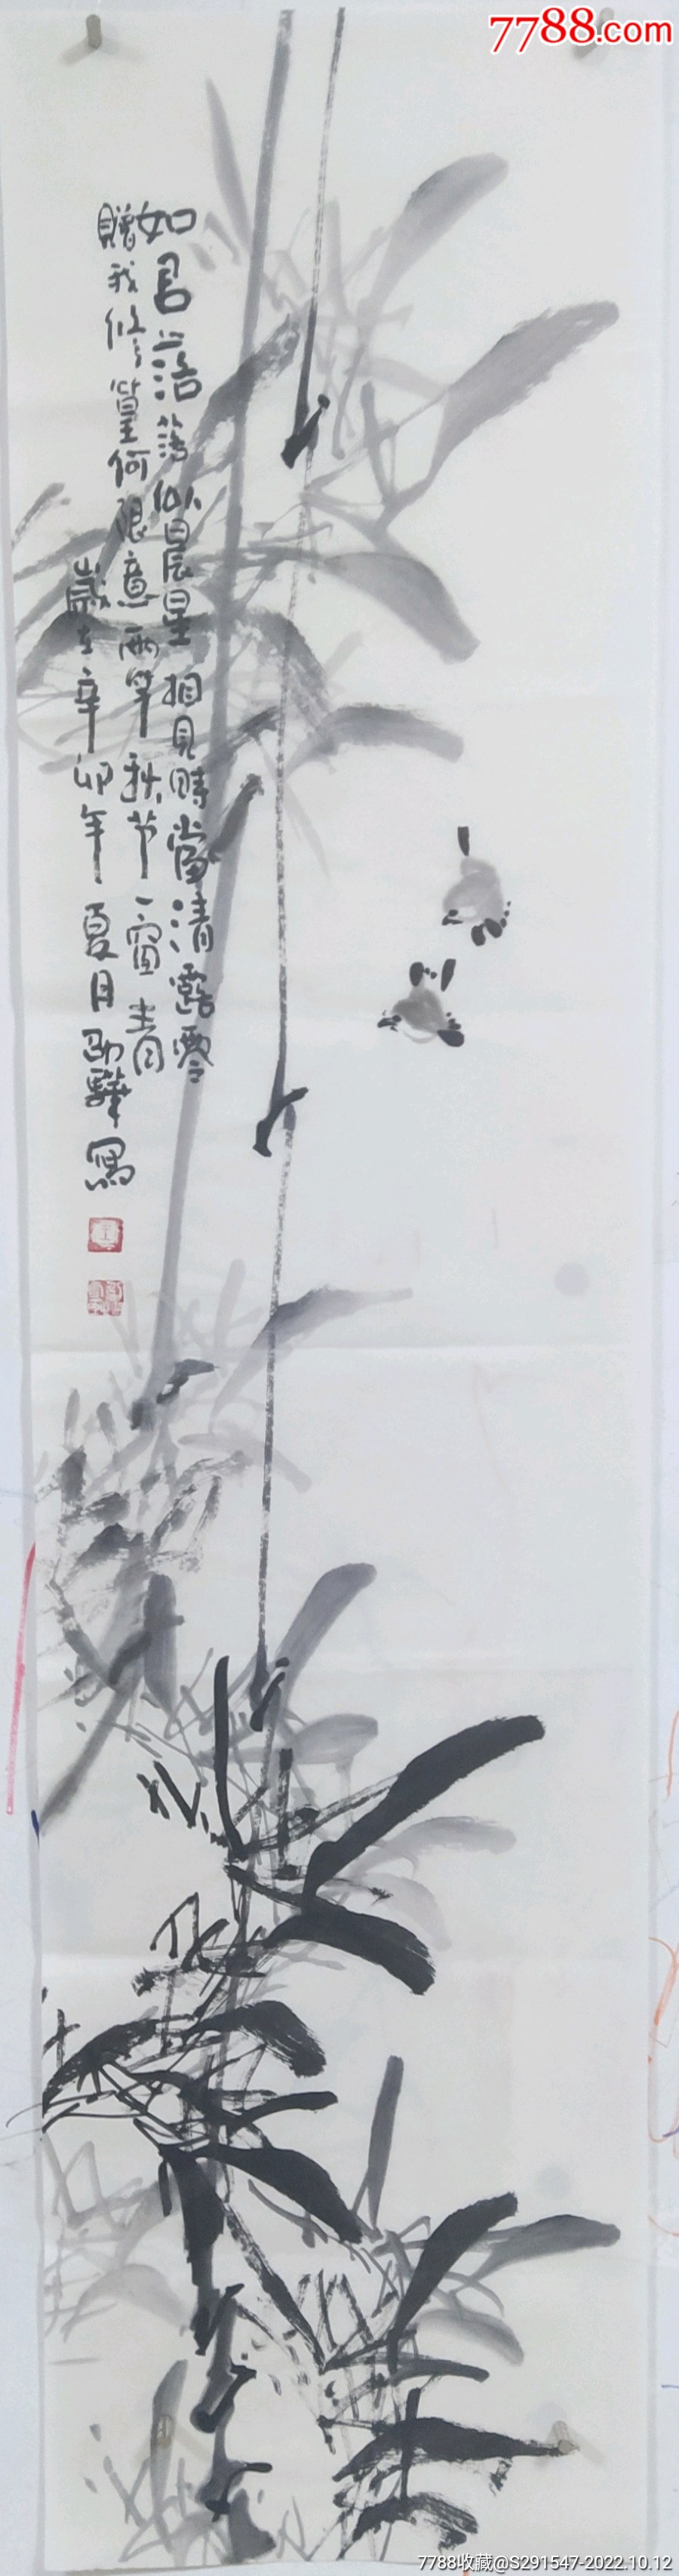 7788.com
如君落落似晨星相見時當清露零
贈我修篁何限意兩竿秋節一窗青
歲在辛卯年夏月 寫
7788收藏@S291547-2022.10.12